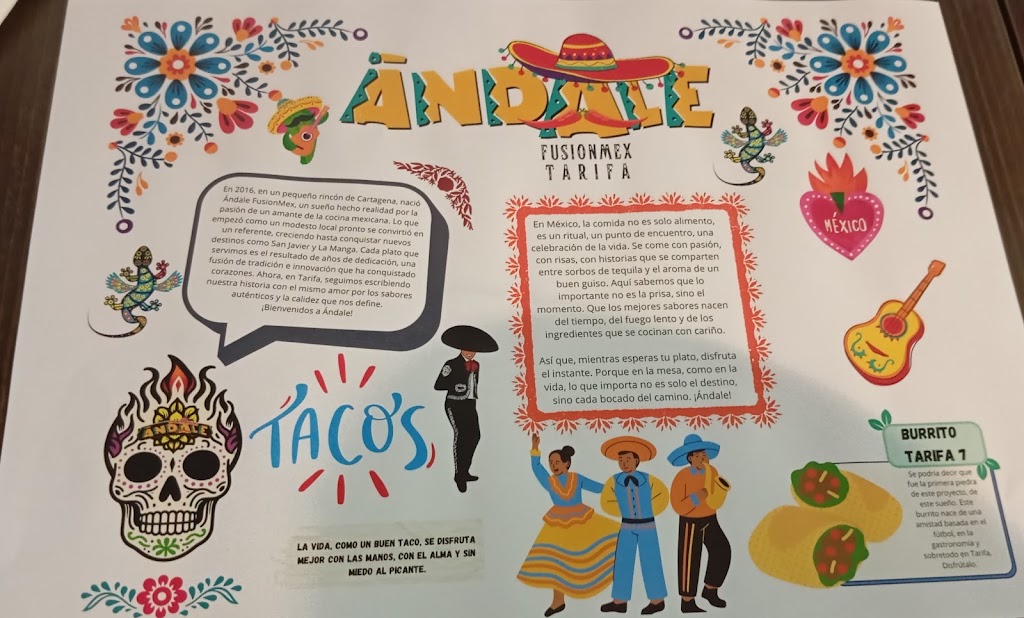 ÁNDALE
FUSIONMEX
TARIFA
En 2016, en un pequeño rincón de Cartagena, nació
Ándale FusionMex, un sueño hecho realidad por la
pasión de un amante de la cocina mexicana. Lo que
empezó como un modesto local pronto se convirtió en
un referente, creciendo hasta conquistar nuevos
destinos como San Javier y La Manga. Cada plato que
servimos es el resultado de años de dedicación, una
fusión de tradición e innovación que ha conquistado
corazones. Ahora, en Tarifa, seguimos escribiendo
nuestra historia con el mismo amor por los sabores
auténticos y la calidez que nos define.
¡Bienvenidos a Ándale!
En México, la comida no es solo alimento,
es un ritual, un punto de encuentro, una
celebración de la vida. Se come con pasión,
con risas, con historias que se comparten
entre sorbos de tequila y el aroma de un
buen guiso. Aquí sabemos que lo
importante no es la prisa, sino el
momento. Que los mejores sabores nacen
del tiempo, del fuego lento y de los
ingredientes que se cocinan con cariño.
Así que, mientras esperas tu plato, disfruta
el instante. Porque en la mesa, como en la
vida, lo que importa no es solo el destino,
sino cada bocado del camino. ¡Ándale!
MÉXICO
ÁNDALE
TACOS
LA VIDA, COMO UN BUEN TACO, SE DISFRUTA
MEJOR CON LAS MANOS, CON EL ALMA Y SIN
MIEDO AL PICANTE.
BURRITO
TARIFA 7
Se podría decir que
fue la primera piedra
de este proyecto, de
este sueño. Este
burrito nace de una
amistad basada en el
fútbol, en la
gastronomía y
sobretodo en Tarifa.
Disfrútalo.